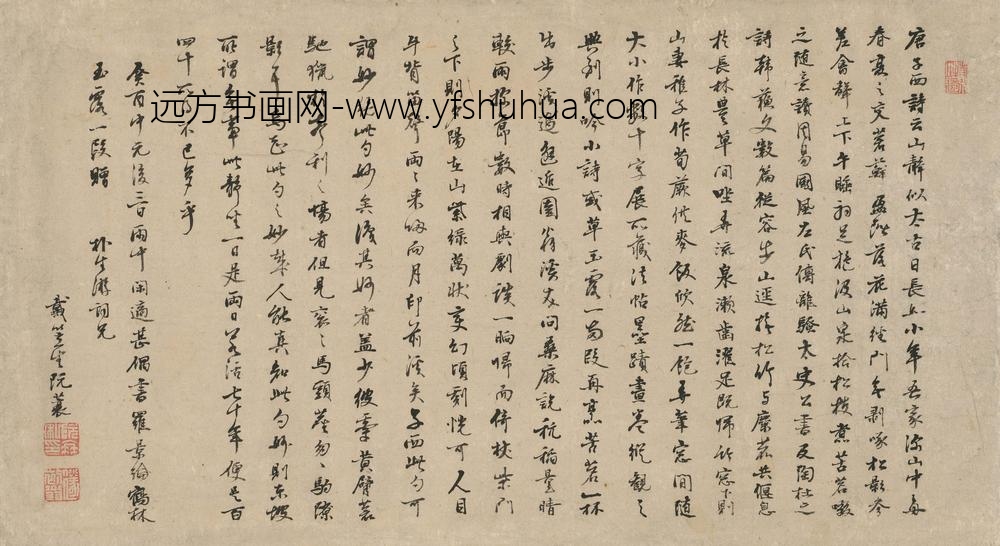 唐子西詩云山靜似太古日長如小年吾家深山中每
春夏之交蒼蘚盈階落花滿徑門無剝啄松影參
差禽聲上下午睡初足旋汲山泉拾松枝煮苦茗啜
之隨意讀周易國風左氏傳離騷太史公書及陶杜之
詩韓蘇文數篇從容步山逕撫松竹与麋鹿共偃息
於長林豐草間坐弄流泉漱齒濯足既歸竹窓下則
山妻稚子作筍蕨供麥飯欣然一飽弄筆窓間隨
大小作數十字展所藏法帖墨蹟畫卷縱觀之
興到則吟小詩或草玉露一兩段再烹苦茗一杯
出步溪邊邂逅園翁溪友問桑麻說秔稻量晴
較雨探節數時相與劇談一晌歸而倚杖柴門
之下則夕陽在山紫綠萬狀變幻頃刻恍可人目
牛背笛聲兩〻來歸而月印前溪矣子西此句可
謂妙絕此句妙矣識其妙者蓋少彼牽黃臂蒼
馳獵於聲利之場者但見衮〻馬頭塵匆〻駒隙
影耳烏知此句之妙哉人能真知此句妙則東坡
所謂無事此靜坐一日是兩日若活七十年便是百
四十所得不已多乎
癸酉中元後三日雨中閑適甚偶書羅景綸鶴林
玉露一段贈 詞兄
戴笠生阮蓑
远方书画网-www.yfshuhua.com